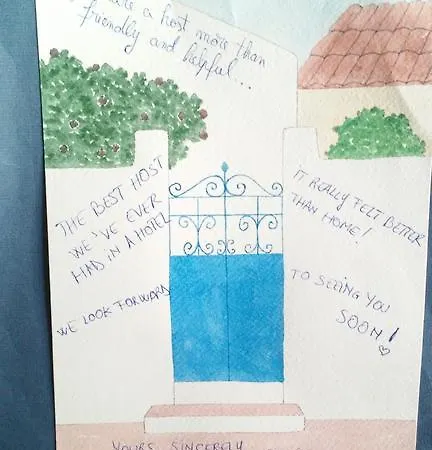 are a host more than
friendly and helpful...
THE BEST HOST
WE'VE EVER
HAD IN A HOTEL
IT REALLY FELT BETTER
THAN HOME!
WE LOOK FORWARD
TO SEEING YOU
SOON!
YOURS SINCERELY